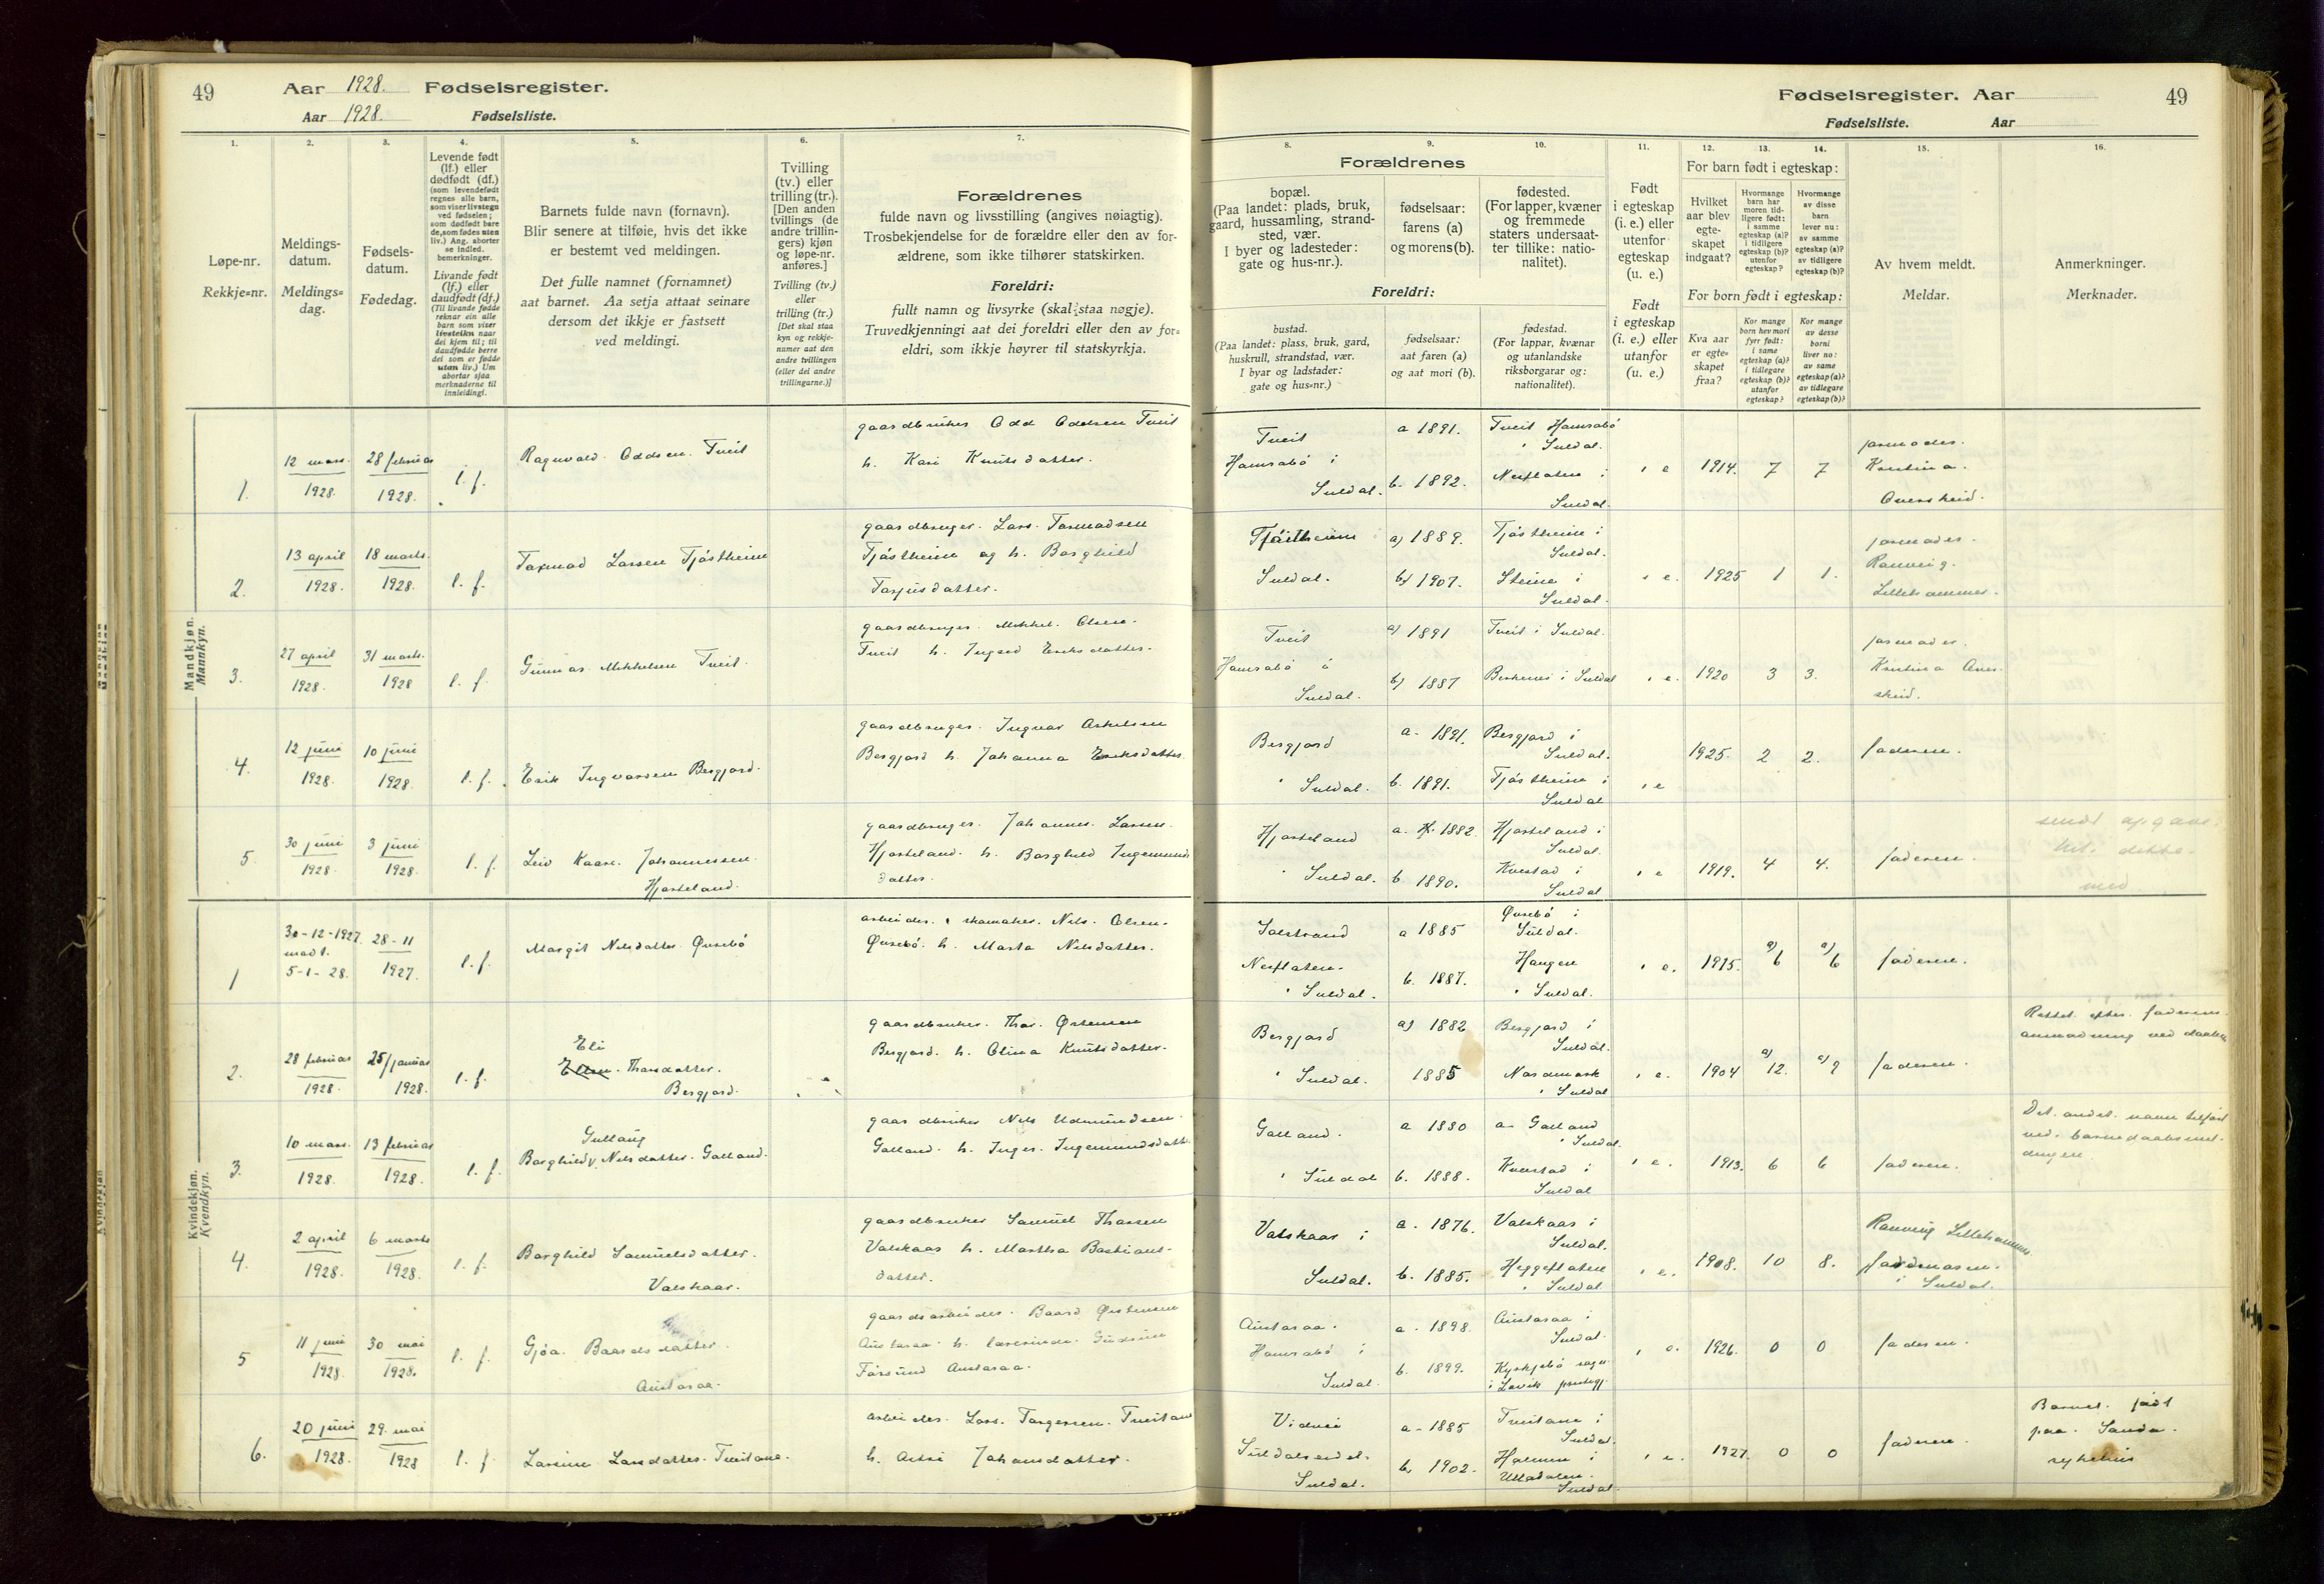 49
Aar 1928. Fødselsregister.
Aar 1928. Fødselsliste.
Fødselsregister. Aar
49
Fødselsliste. Aar
1.
2.
3.
4.
5.
6.
7.
8.
9.
10.
11.
12.
13.
14.
15.
16.
Løpe-nr.
Rekkje=nr.
Meldings-
datum.
Meldings=
dag.
Fødsels-
datum.
Fødedag.
Levende født
(lf.) eller
dødfødt (df.)
(som levendefødt
regnes alle barn,
som viser livstegn
ved fødselen;
som dødfødt bare
de, som fødes uten
liv.) Ang. aborter
se indled.
bemerkninger.
Livande født
(lf.) eller
daudfødt (df.)
(Til livande fødde
reknar ein alle
born som viser
livsteikn naar
dei kjem til; til
daudfødde berre
dei som er fødde
utan liv.) Um
abortar sjaa
merknaderne til
innleidingi.
Barnets fulde navn (fornavn).
Blir senere at tilføie, hvis det ikke
er bestemt ved meldingen.
Det fulle namnet (fornamnet)
aat barnet. Aa setja attaat seinare
dersom det ikkje er fastsett
ved meldingi.
Tvilling
(tv.) eller
trilling (tr.).
[Den anden
tvillings (de
andre trillin-
gers) kjøn
og løpe-nr.
anføres.]
Tvilling (tv.)
eller
trilling (tr.)
[Det skal staa
kyn og rekkje-
numer aat den
andre tvillingen
(eller dei andre
trillingarne.)]
Forældrenes
fulde navn og livsstilling (angives nøiagtig).
Trosbekjendelse for de forældre eller den av for-
ældrene, som ikke tilhører statskirken.
Foreldri:
fullt namn og livsyrke (skal staa nøgje).
Truvedkjenningi aat dei foreldri eller den av for=
eldri, som ikkje høyrer til statskyrkja.
Forældrenes
bopæl.
(Paa landet: plads, bruk,
gaard, hussamling, strand-
sted, vær.
I byer og ladesteder:
gate og hus-nr.).
fødselsaar:
farens (a)
og morens (b).
fødested.
(For lapper, kvæner
og fremmede
staters undersaat-
ter tillike: natio-
nalitet).
Foreldri:
bustad.
(Paa landet: plass, bruk, gard,
huskrull, strandstad, vær.
I byar og ladstader:
gate og hus=nr.)
fødselsaar:
aat faren (a)
og aat mori (b).
fødestad.
(For lappar, kvænar
og utanlandske
riksborgarar og:
nationalitet).
Født
i egteskap
(i. e.) eller
utenfor
egteskap
(u. e.)
Født
i egteskap
(i. e.) eller
utanfor
(u. e.)
For barn født i egteskap:
Hvilket
aar blev
egte-
skapet
indgaat?
Hvormange
barn har
moren tid-
ligere født:
i samme
egteskap (a)?
i tidligere
egteskap (b)?
utenfor
egteskap?
Hvormange
av disse
barn
lever nu:
av samme
egteskap (a)?
av tidligere
egteskap (b)?
For born født i egteskap:
Kva aar
er egte=
skapet
fraa?
Kor mange
born hev mori
fyrr født:
i same
egteskap (a)?
i tidlegare
egteskap (b)?
utanfor
egteskap?
Kor mange
av desse
borni
liver no:
av same
egteskap (a)?
av tidlegare
egteskap (b)?
Av hvem meldt.
Meldar.
Anmerkninger.
Merknader.
Mandkjøn.
Mannkyn.
1. 12 mars. 1928. 28 februar 1928. l. f. Ragnvald. Oddsen. Tveit
gaardbruker Odd Oddsen Tveit
h. Kari Knutsdatter.
Tveit
Hamrabø i
Suldal.
a 1891.
b. 1892.
Tveit Hamrabø
i Suldal.
Nesflaten i
Suldal.
i e 1914. 7 7
jormoder.
Kristina.
2. 13 april 1928. 18 marts. 1928. l. f. Tormod Larsen Tjøstheim
gaardbruger. Lars. Tormodsen
Tjøstheim og h. Borghild
Torjusdatter.
Tjøstheim
Suldal.
a) 1889.
b) 1907.
Tjøstheim i
Suldal.
Steine i
Suldal.
i e. 1925 1 1.
jormoder.
Ranveig.
Lillehammer.
3. 27 april 1928. 31 marts. 1928 l. f. Gunnar Mikkelsen Tveit.
gaardbruger. Mikkel. Olsen.
Tveit h. Ingrid Eriksdatter.
Tveit
Hamrabø i
Suldal.
a) 1891
b) 1887
Tveit i Suldal.
i Suldal
i e. 1920 3 3.
jormoder.
Kristina
4. 12 juni 1928. 10 juni 1928. l. f. Erik Ingvarsen Bergjord.
gaardbruger. Ingvar Askelsen
Bergjord h. Johanna Eriksdatter.
Bergjord
i Suldal.
a. 1891.
b. 1891.
Bergjord i
Suldal.
Tjøstheim i
Suldal
i e 1925. 2 2. faderen.
5. 30 juni 1928. 3 juni 1928. l. f. Leiv Kaare. Johannessen.
Hjorteland.
gaardbruger. Johannes. Larsen.
Hjorteland. h. Borghild Ingemunds
datter.
Hjorteland
i Suldal.
a. 1882.
b 1890.
Hjorteland i
Suldal.
Kvestad i
Suldal
i e 1919. 4 4. faderen.
Kvindekjøn.
Kvendkyn.
1 30-12-1927.
modt.
5-1-28. 28-11 1927. l. f. Margit Nilsdatter. Øvsebø
arbeider. skomaker. Nils. Olsen.
Øvsebø. h. Marta Nilsdatter.
Nesflaten.
i Suldal.
a 1885
b. 1887.
Øvsebø i
Suldal.
Haugen
i Suldal.
i e. 1915. a) 6 a) 6 faderen.
2. 28 februar 1928. 25/januar 1928. l. f. Eli
Thorsdatter.
Bergjord.
gaardbruker. Thor. Østensen
Bergjord. h. Olina Knutsdatter.
Bergjord
i Suldal.
a) 1882
1885
Bergjord i
Suldal.
Nordmork
i Suldal
i e. 1904 a) 12. a) 9 faderen.
Rettet. efter. faderens.
anmodning ved daaben
3. 10 mars. 1928. 13 februar 1928. l. f. Gullaug
Borghild Nilsdatter. Galland.
gaardbruker Nils Udmundsen
Galland. h. Inger. Ingemundsdatter
Galland.
i Suldal
a 1880
b. 1888.
a. Galland
i Suldal.
Kvestad i
Suldal
i e. 1913. 6 6 faderen.
Det. andet. navn tilføiet
ved. barnedaabsmel-
dingen.
4. 2 april 1928. 6 marts 1928. l. f. Borghild Samuelsdatter.
Valskaar.
gaardbruker Samuel Thorsen
Valskaar h. Martha Bastians-
datter.
Valskaar i
Suldal.
a. 1876.
b. 1885.
Valskaar i
Suldal.
i Suldal.
i e. 1908. 10 8.
Ranveig Lillehammer.
jordmoren.
i Suldal.
5 11 juni 1928. 30 mai 1928. l. f. Gjøa. Baardsdatter.
Austaraa.
gaardsarbeider. Baard Østensen
Austaraa. h. lærerinde. Gudrun
Førsund Austaraa.
Austaraa.
Hamrabø i
Suldal.
a. 1898.
b. 1899.
Austaraa i
Suldal.
Kyrkjebø sogn.
i Lavik prestegj.
i e. 1926. 0 0 faderen.
6. 20 juni 1928. 29. mai 1928 l. f. Larsine Larsdatter. Tveitane.
arbeider. Lars. Torgersen. Tveitane
h. Astri Johansdatter.
Suldalseidet.
Suldal.
a. 1885
b. 1902.
Tveitane i
Suldal.
i
Ulladalen.
Suldal.
i e. 1927. 0 0 faderen.
Barnet. født
paa. Sauda.
sykehus